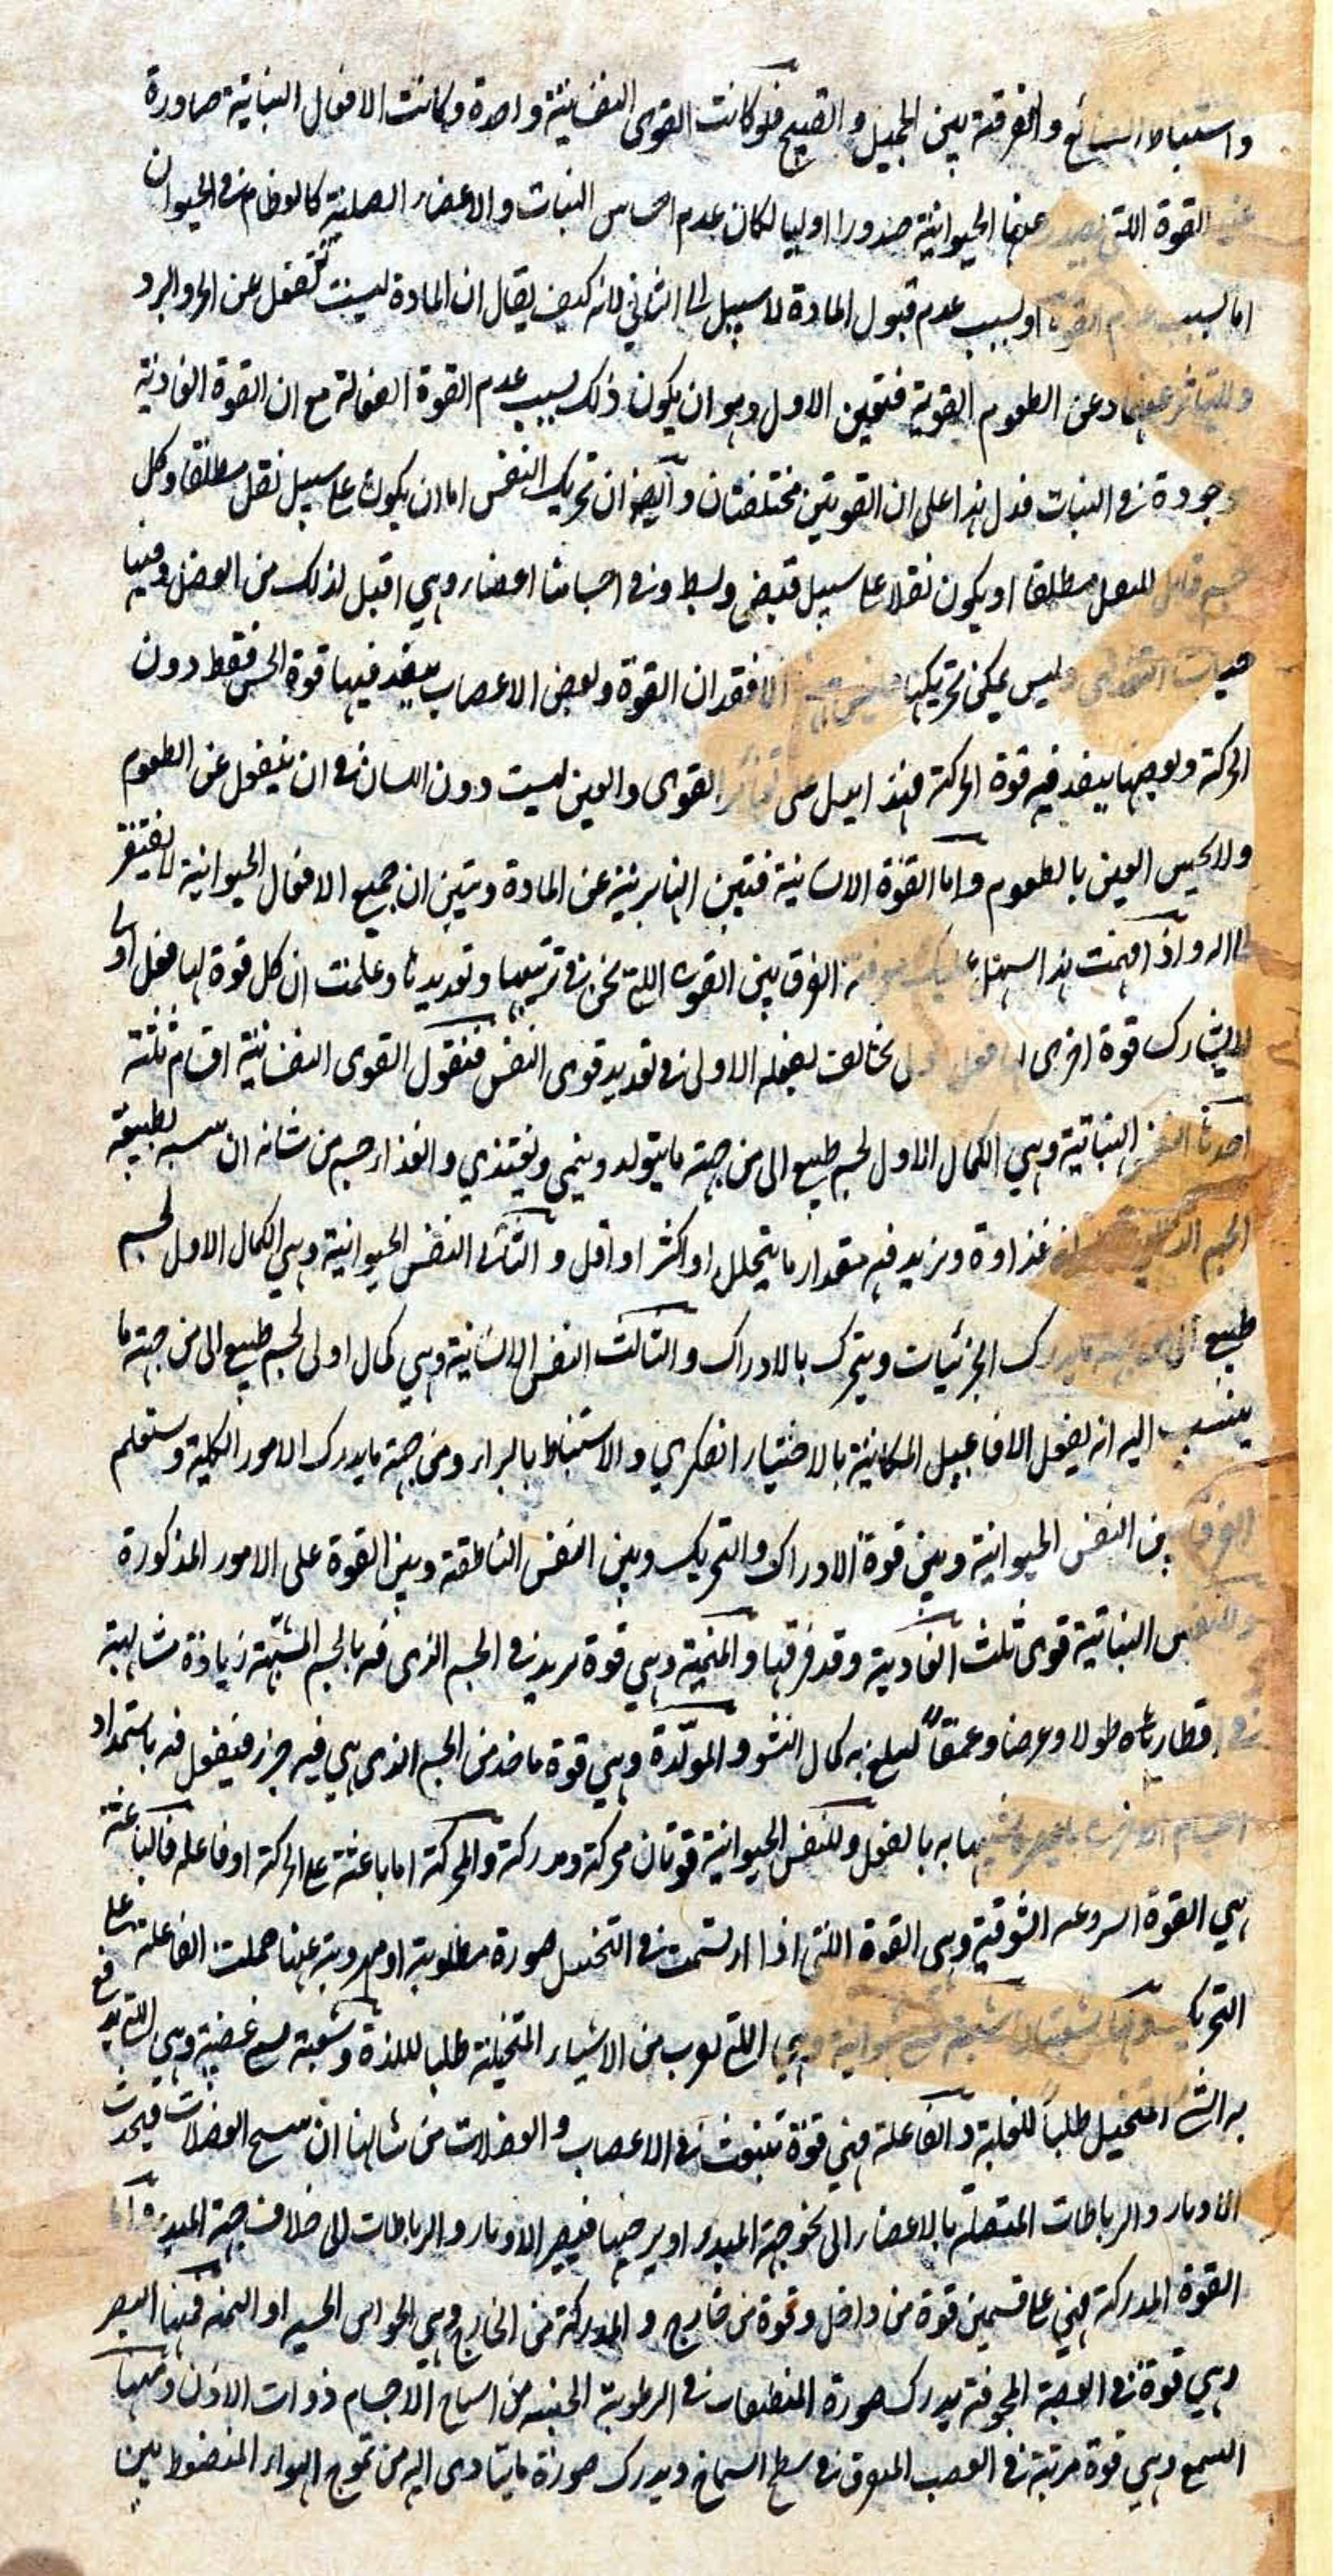 واستنباط الصنائع والتفرقة بين الجميل والقبيح فلو كانت القوى النفسانية واحدة وكانت الافعال النباتية صادرة
القوة اللتى يصدر عنها الحيوانية صدورا اوليا لكان عدم احساس النبات والاعضاء الصلبة كالعظام فى الحيوان
اما لسبب عدم القوة او بسبب عدم قبول المادة لا سبيل الى الثانى لانه كيف يقال ان المادة ليست تنفعل عن الحر والبرد
وللتاثر عنها وعن الطعوم القوية فتعين الاول وهو ان يكون ذلك بسبب عدم القوة الفعالة مع ان القوة الغاذية
موجودة فى النبات فدل هذا على ان القوتين مختلفتان وايضا ان تحريك النفس اما ان يكون على سبيل نقل مطلقا وكل
جسم قابل للنقل مطلقا او يكون نقلا على سبيل قبض وبسط وفى اجسامنا اعضاء وهى اقبل لذلك من العضل وفيها
حياة التغذى وليس يمكن تحريكها الا فقدان القوة وبعض الاعصاب ينفذ فيها قوة الحس فقط دون
الحركة وبعضها ينفذ فيه قوة الحركة فهذا على تغاير القوى والعين ليست دون اللسان فى ان ينفعل عن الطعوم
ولا يحس العين بالطعوم واما القوة الانسانية فتبين انها بريئة عن المادة وتبين ان جميع الافعال الحيوانية لا يفتقر
الى اله واذا فهمت هذا سهل عليك معرفة الفرق بين القوى اللتى نحن فى ترتيبها وتعديدها وعلمت ان كل قوة لها فعل اولى
لا يشارك قوة اخرى لها فعل اول تخالف لفعله الاولى فى تعديد قوى النفس فنقول القوى النفسانية اقسام ثلثة
احدها النفس النباتية وهى الكمال الاول لجسم طبيعى الى من جهة ما يتولد وينمى ويغتذى والغذاء جسم من شانه ان بطبيعة
الجسم الذى غذاوه ويزيد فيه مقدار ما يتحلل او اكثر او اقل والثانى النفس الحيوانية وهى الكمال الاول لجسم
طبيعى الى من جهة ما يدرك الجزئيات ويتحرك بالادراك والثالث النفس الانسانية وهى كمال اولى لجسم طبيعى الى من جهة ما
ينسب اليه انه يفعل الافاعيل المكانية بالاختيار الفكرى والاستنباط بالراى ومن جهة ما يدرك الامور الكلية وستعلم
الفرق بين النفس الحيوانية وبين قوة الادراك والتحريك وبين النفس الناطقة وبين القوة على الامور المذكورة
وللنفس النباتية قوى ثلث الغاذية وقد فرقها والمنمية وهى قوة يزيد فى الجسم الذى فيه بالجسم المشبه زيادة متناهية
فى اقطاره طولا وعرضا وعمقا ليبلغ به كمال النشو والمولدة وهى قوة ماخذ من الجسم الذى هى فيه جزء فيفعل فيه باستمداد
به بالفعل وللنفس الحيوانية قوتان محركة ومدركة والمحركة اما باعثة على الحركة او فاعلة فالباعثة
هى القوة الشوقية وهى القوة اللتى اذا ارتسمت فى التخيل صورة مطلوبة او مهروبة عنها حملت الفاعلة على
التحريك وهى اللتى تقرب من الاشياء المتخيلة طلبا للذة وشعبة تسمى غضبية وهى اللتى يدفع
به الشى المتخيل طلبا للغلبة والفاعلة فهى قوة تنبعث فى الاعصاب والعضلات من شانها ان العضلات فيجذب
الاوتار والرباطات المتصلة بالاعضاء الى نحو جهة المبدء او يرخيها فيصير الاوتار والرباطات الى خلاف جهة المبدء واما
القوة المدركة فهى على قسمين قوة من داخل وقوة من خارج والمدركة من الخارج وهى الحواس او الثمنه فمنها البصر
وهى قوة فى العصبة المجوفة يدرك صورة المنطبعات فى الرطوبة من اشباح الاجسام ذوات الالوان ومنها
السمع وهى قوة مرتبة فى العصب المفرق فى سطح السماخ ويدرك صورة ما يتادى اليه من تموج الهواء المنضغط بين